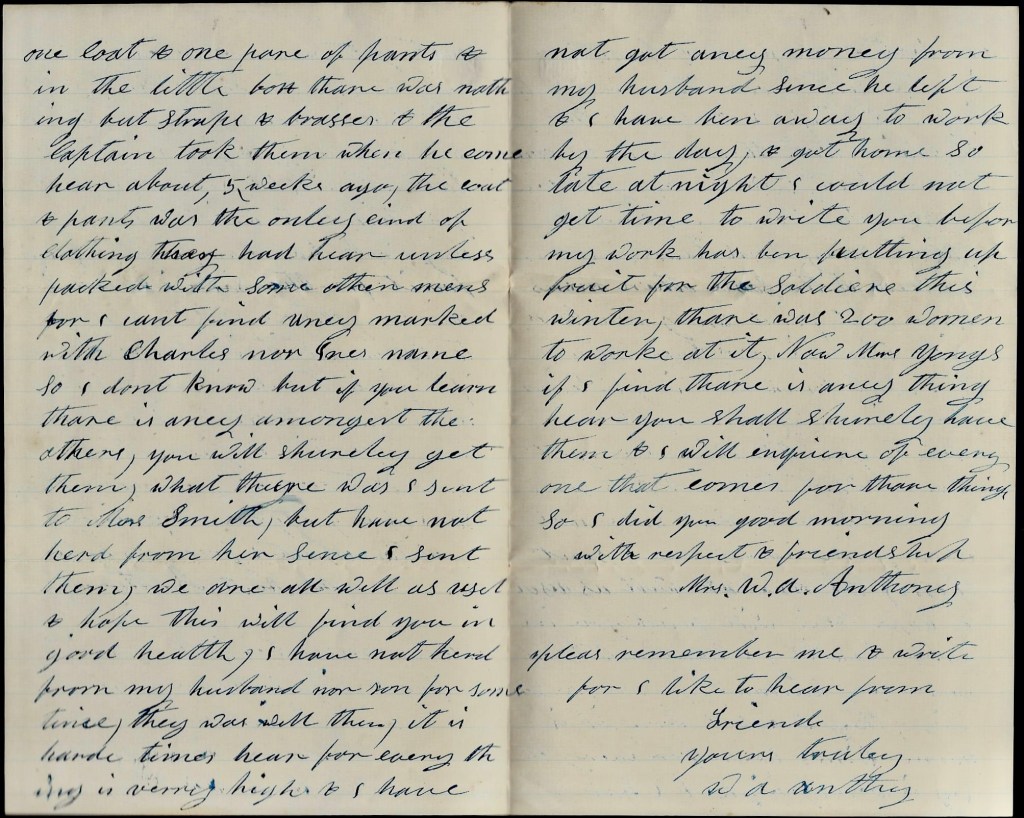 one Coat & one pare of pants &
in the little box thare was noth
ing but straps & brasses & the
Captain took them when he come
hear about, 5 weeks ago, the coat
& pants was the onley cind of
clothing they had hear unless
packed with some other mens
for I cant find aney marked
with Charles nor name
so I dont know but if you learn
thare is aney amongest the
others, you will shureley get
them, what theyre was I sent
to Mrs Smith, but have not
herd from her sence I sent
them, we are all well as usel
& hope this will find you in
good health, I have not herd
from my husband nor son for some
time, they was well then, it is
harde times hear for every th
ing is verry high & I have
not got aney money from
my husband since he left
& I have ben away to work
by the day, & got home so
late at night I could not
get time to write you befor
my work has ben putting up
fruit for the soldiers this
winter, thare was 200 women
to worke at it, Now Mrs Yongs
if I find thare is aney thing
hear you shall shureley have
them & I will enquire of every
one that comes for thare things
so I did you good morning
with respect & friendship
Mrs. W. A. Anthony
pleas remember me & write
for I like to hear from
Friends
yours truley
W A